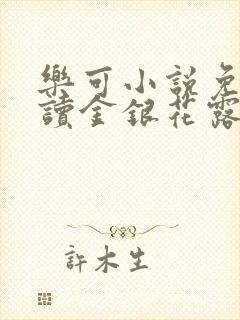 樂可小說免
讀金銀花露
許木生